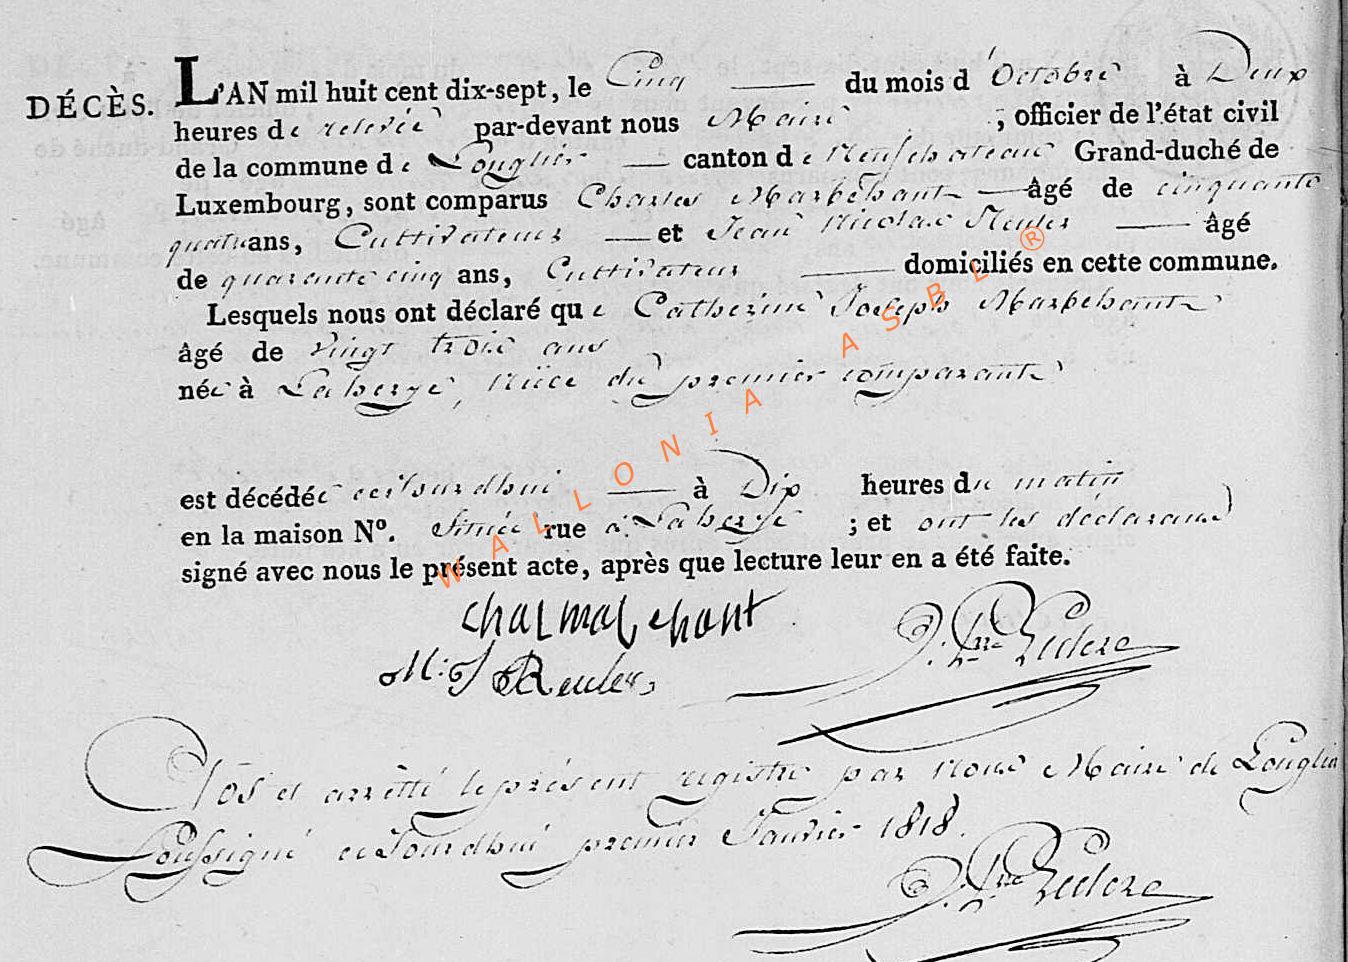 DÉCÈS.
L'AN mil huit cent dix-sept, le Cinq du mois d'Octobre à Deux
heures de relevée par-devant nous Maire ; officier de l'état civil
de la commune de Longlier canton de Neufchateau Grand-duché de
Luxembourg, sont comparus Charles Marbehant âgé de cinquante
quatre ans, Cultivateur et Jean Nicolas Reuler âgé
de quarante cinq ans, Cultivateur domiciliés en cette commune.
Lesquels nous ont déclaré que Catherine Joseph Marbehant
âgé de vingt trois ans
née à Laherge, Niéce du premier comparant
est décédée cejourdhui à Dix heures du matin
en la maison Nº. Située rue à Laherge ; et ont les déclarans
signé avec nous le présent acte, après que lecture leur en a été faite.
Char marbehant
Reuler
Clos et arrêtté le présent registre par Nous Maire de Longlier
Soussigné cejourdhui premier Janvier 1818.
WALLONIA ASBL ®